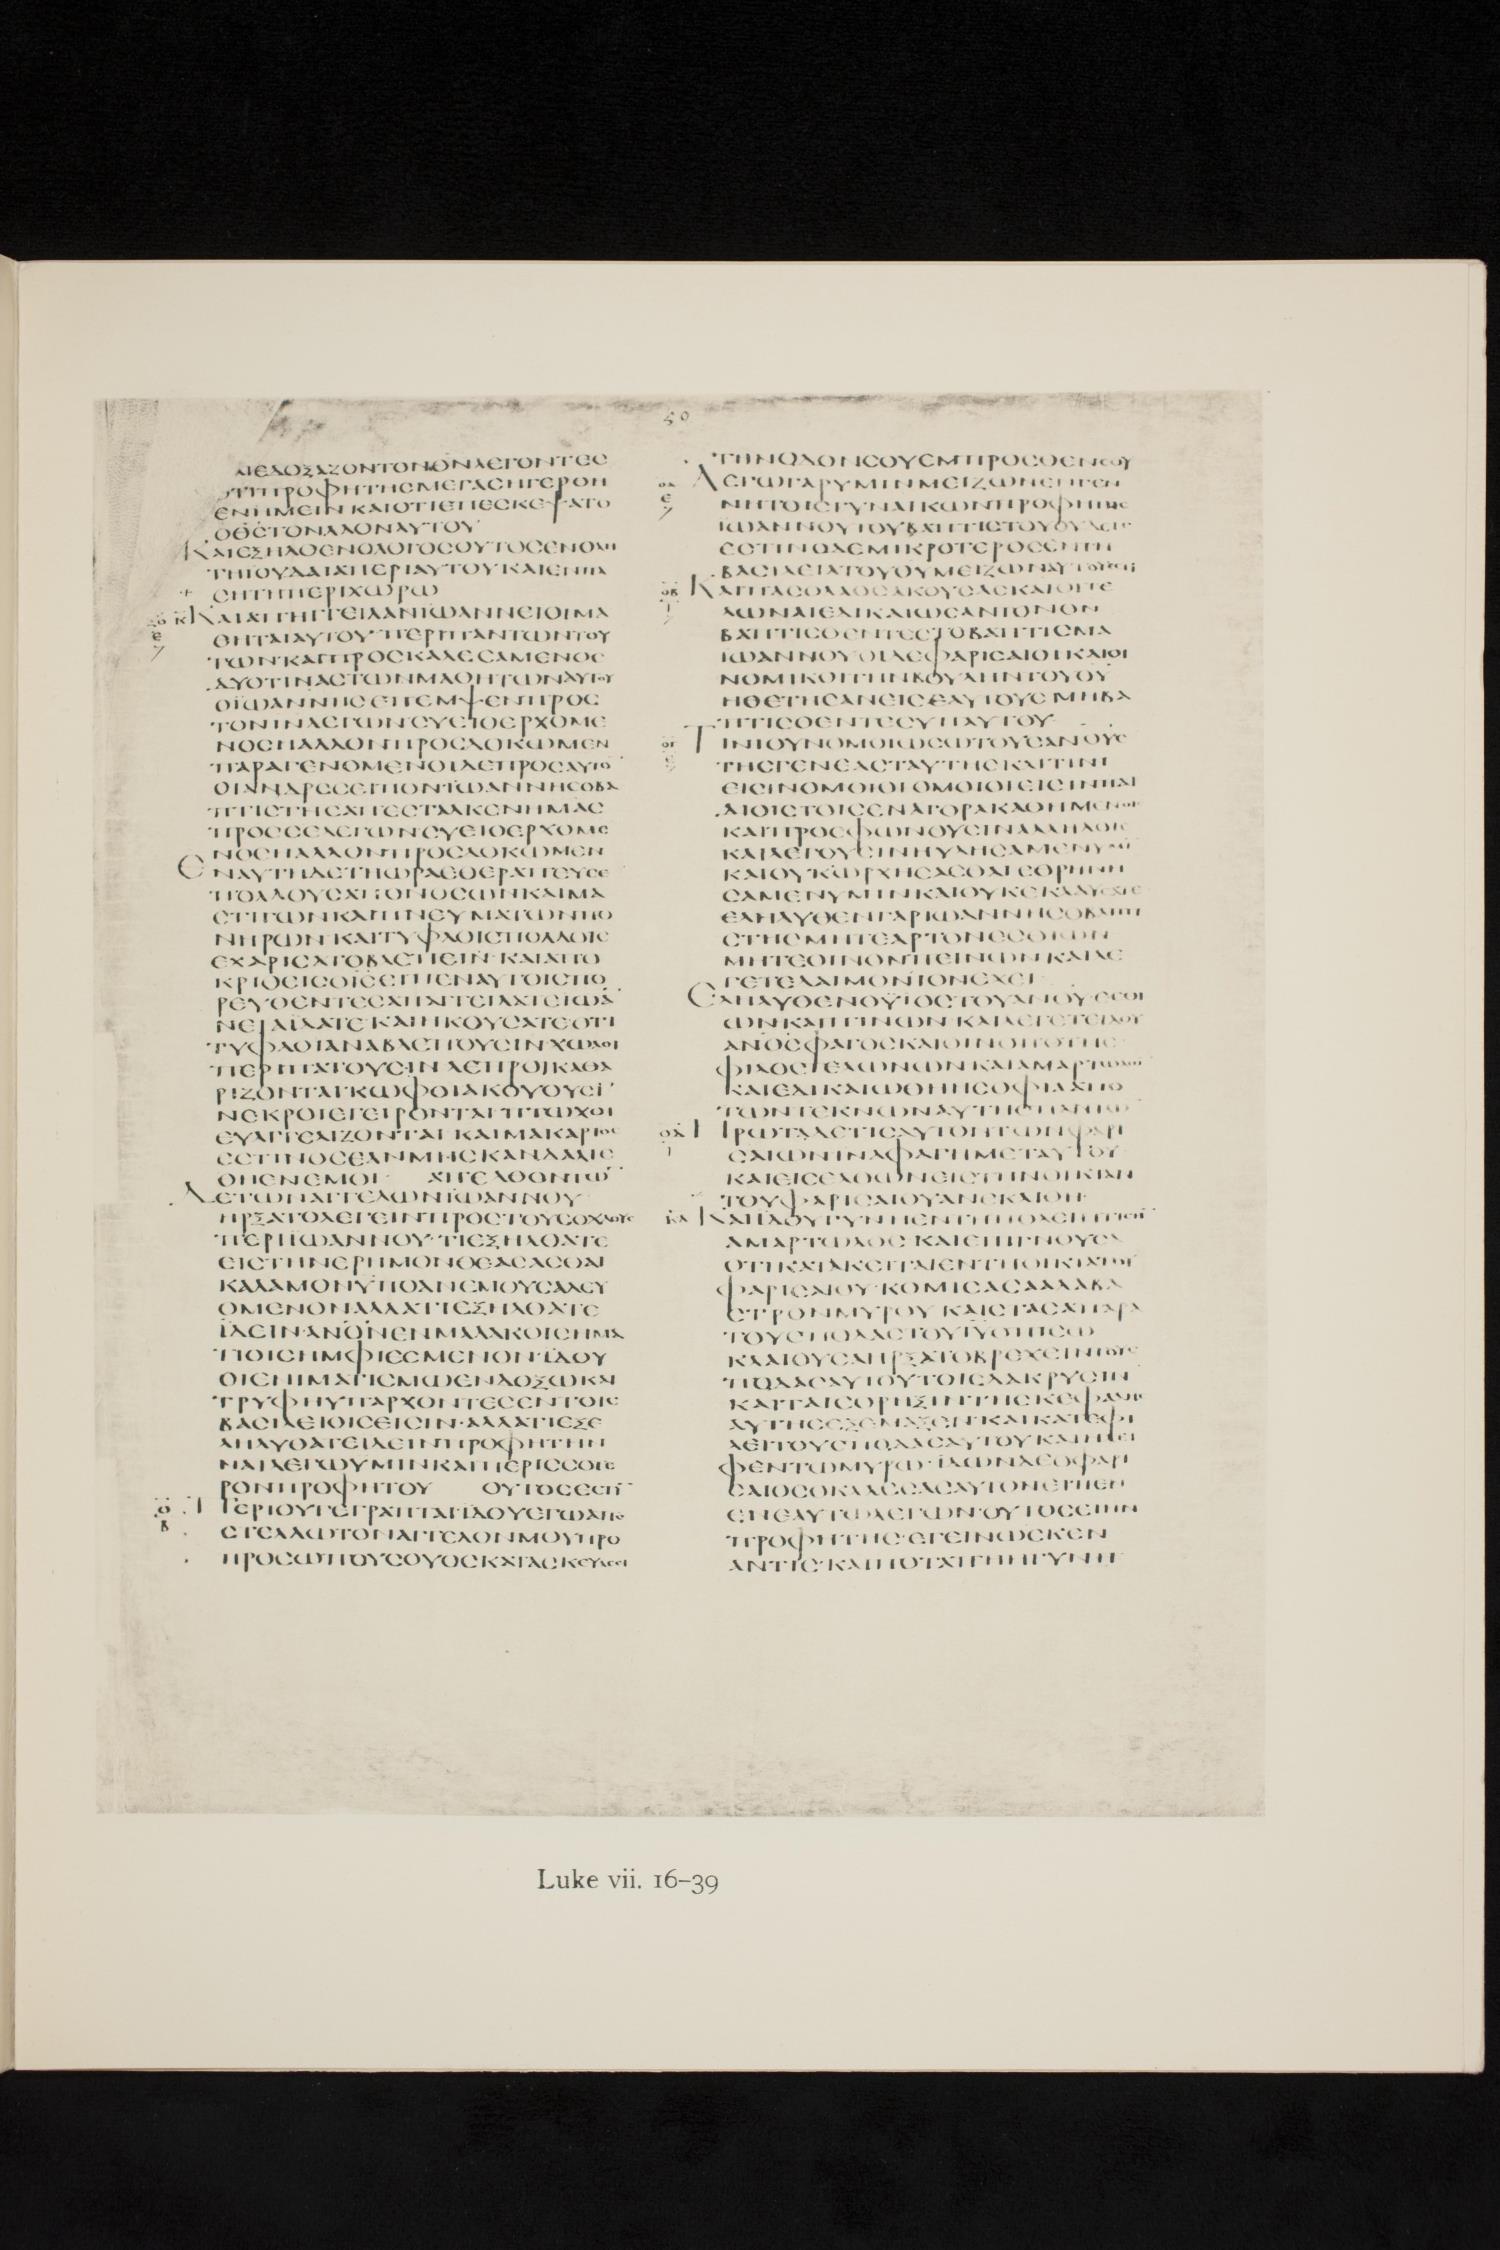 50
ΔΕΔΟΞΑΖΟΝΤΟΝΘΝΛΕΓΟΝΤΕC
ΟΤΙΠΡΟΦΗΤΗCΜΕΓΑCΗΓΕΡΘΗ
ΕΝΗΜΕΙΝΚΑΙΟΤΙΕΠΕCΚΕΨΑΤΟ
ΟΘCΤΟΝΛΑΟΝΑΥΤΟΥ
ΚΑΙΕΞΗΛΘΕΝΟΛΟΓΟCΟΥΤΟCΕΝΟΛΗ
ΤΗΙΟΥΔΑΙΑΠΕΡΙΑΥΤΟΥΚΑΙΕΝΠΑ
CΗΤΗΠΕΡΙΧΩΡΩ
ΚΑΙΑΠΗΓΓΕΙΛΑΝΙΩΑΝΝΕΙΟΙΜΑ
ΘΗΤΑΙΑΥΤΟΥ·ΠΕΡΙΠΑΝΤΩΝΤΟΥ
ΤΩΝ·ΚΑΙΠΡΟCΚΑΛΕCΑΜΕΝΟC
ΔΥΟΤΙΝΑCΤΩΝΜΑΘΗΤΩΝΑΥΤΟΥ
ΟΪΩΑΝΝΗCΕΠΕΜΨΕΝΠΡΟC
ΤΟΝΙΝΛΕΓΩΝCΥΕΙΟΕΡΧΟΜΕ
ΝΟCΗΑΛΛΟΝΠΡΟCΔΟΚΩΜΕΝ
ΠΑΡΑΓΕΝΟΜΕΝΟΙΔΕΠΡΟCΑΥΤΟ
ΟΙΑΝΔΡΕCΕΙΠΟΝΪΩΑΝΝΗCΟΒΑ
ΠΤΙCΤΗCΑΠΕCΤΑΛΚΕΝΗΜΑC
ΠΡΟCCΕΛΕΓΩΝCΥΕΙΟΕΡΧΟΜΕ
ΝΟCΗΑΛΛΟΝΠΡΟCΔΟΚΩΜΕΝ
ΕΝΑΥΤΗΔΕΤΗΩΡΑΕΘΕΡΑΠΕΥCΕ
ΠΟΛΛΟΥCΑΠΟΝΟCΩΝΚΑΙΜΑ
CΤΙΓΩΝΚΑΙΠΝΕΥΜΑΤΩΝΠΟ
ΝΗΡΩΝ·ΚΑΙΤΥΦΛΟΙCΠΟΛΛΟΙC
ΕΧΑΡΙCΑΤΟΒΛΕΠΕΙΝ·ΚΑΙΑΠΟ
ΚΡΙΘΕΙCΟΙCΕΙΠΕΝΑΥΤΟΙCΠΟ
ΡΕΥΘΕΝΤΕCΑΠΑΓΓΕΙΛΑΤΕΙΩΑ
ΝΕΙΑΪΔΑΤΕΚΑΙΗΚΟΥCΑΤΕΟΤΙ
ΤΥΦΛΟΙΑΝΑΒΛΕΠΟΥCΙΝΧΩΛΟΙ
ΠΕΡΙΠΑΤΟΥCΙΝΛΕΠΡΟΙΚΑΘΑ
ΡΙΖΟΝΤΑΙΚΩΦΟΙΑΚΟΥΟΥCΙ
ΝΕΚΡΟΙΕΓΕΙΡΟΝΤΑΙΠΤΩΧΟΙ
ΕΥΑΓΓΕΛΙΖΟΝΤΑΙ ΚΑΙΜΑΚΑΡΙΟC
ΕCΤΙΝΟCΕΑΝΜΗCΚΑΝΔΑΛΙC
ΘΗΕΝΕΜΟΙ ΑΠΕΛΘΟΝΤΩ
ΔΕΤΩΝΑΓΓΕΛΩΝΪΩΑΝΝΟΥ
ΗΡΞΑΤΟΛΕΓΕΙΝΠΡΟCΤΟΥCΟΧΛΟΥC
ΠΕΡΙΪΩΑΝΝΟΥ·ΤΙΕΞΗΛΘΑΤΕ
ΕΙCΤΗΝΕΡΗΜΟΝΘΕΑCΑCΘΑΙ
ΚΑΛΑΜΟΝΫΠΟΑΝΕΜΟΥCΑΛΕΥ
ΟΜΕΝΟΝΑΛΛΑΤΙΕΞΗΛΘΑΤΕ
ΪΔΕΙΝ·ΑΝΟΝΕΝΜΑΛΑΚΟΙCΗΜΑ
ΤΙΟΙCΗΜΦΙΕCΜΕΝΟΝ·ΪΔΟΥ
ΟΙΕΝΙΜΑΤΙCΜΩΕΝΔΟΞΩΚΑΙ
ΤΡΥΦΗΥΠΑΡΧΟΝΤΕCΕΝΤΟΙC
ΒΑCΙΛΕΙΟΙCΕΙCΙΝ·ΑΛΛΑΤΙΕΞΕ
ΛΗΛΥΘΑΤΕΙΔΕΙΝΠΡΟΦΗΤΗΝ
ΝΑΙΛΕΓΩΥΜΙΝΚΑΙΠΕΡΙCCΟΤΕ
ΡΟΝΠΡΟΦΗΤΟΥ ΟΥΤΟCΕCΤΙ
ΠΕΡΙΟΥΓΕΓΡΑΠΤΑΙΪΔΟΥΕΓΩΑΠΟ
CΤΕΛΛΩΤΟΝΑΓΓΕΛΟΝΜΟΥΠΡΟ
ΠΡΟCΩΠΟΥCΟΥΟCΚΑΤΑCΚΕΥΑCΕΙ
ΤΗΝΟΔΟΝCΟΥΕΜΠΡΟCΘΕΝCΟΥ
ΛΕΓΩΓΑΡΥΜΙΝΜΕΙΖΩΝΕΝΓΕΝ
ΝΗΤΟΙCΓΥΝΑΙΚΩΝΠΡΟΦΗΤΗC
ΙΩΑΝΝΟΥΤΟΥΒΑΠΤΙCΤΟΥΟΥΔΕΙC
ΕCΤΙΝΟΔΕΜΙΚΡΟΤΕΡΟCΕΝΤΗ
ΒΑCΙΛΕΙΑΤΟΥΘΥΜΕΙΖΩΝΑΥΤΟΥΕCΤΙ
ΚΑΙΠΑCΟΛΑΟCΑΚΟΥCΑCΚΑΙΟΙΤΕ
ΛΩΝΑΙΕΔΙΚΑΙΩCΑΝΤΟΝΘΝ
ΒΑΠΤΙCΘΕΝΤΕCΤΟΒΑΠΤΙCΜΑ
ΙΩΑΝΝΟΥΟΙΔΕΦΑΡΙCΑΙΟΙΚΑΙΟΙ
ΝΟΜΙΚΟΙΤΗΝΒΟΥΛΗΝΤΟΥΘΥ
ΗΘΕΤΗCΑΝΕΙCΕΑΥΤΟΥCΜΗΒΑ
ΠΤΙCΘΕΝΤΕCΥΠΑΥΤΟΥ
ΤΙΝΙΟΥΝΟΜΟΙΩCΩΤΟΥCΑΝΟΥC
ΤΗCΓΕΝΕΑCΤΑΥΤΗCΚΑΙΤΙΝΙ
ΕΙCΙΝΟΜΟΙΟΙΟΜΟΙΟΙΕΙCΙΝΠΑΙ
ΔΙΟΙCΤΟΙCΕΝΑΓΟΡΑΚΑΘΗΜΕΝΟΙC
ΚΑΙΠΡΟCΦΩΝΟΥCΙΝΑΛΛΗΛΟΙC
ΚΑΙΛΕΓΟΥCΙΝΗΥΛΗCΑΜΕΝΥΜΙ
ΚΑΙΟΥΚΩΡΧΗCΑCΘΑΙΕΘΡΗΝΗ
CΑΜΕΝΥΜΙΝΚΑΙΟΥΚΕΚΛΑΥCΑΤΕ
ΕΛΗΛΥΘΕΝΓΑΡΙΩΑΝΝΗCΟΒΑΠΤΙ
CΤΗCΜΗΤΕΑΡΤΟΝΕCΘΙΩΝ
ΜΗΤΕΟΙΝΟΝΠΕΙΝΩΝΚΑΙΛΕ
ΓΕΤΕΔΑΙΜΟΝΙΟΝΕΧΕΙ
ΕΛΗΛΥΘΕΝΟΫΪΟCΤΟΥΑΝΟΥΕCΘΙ
ΩΝΚΑΙΠΙΝΩΝ ΚΑΙΛΕΓΕΤΕΙΔΟΥ
ΑΝΟCΦΑΓΟCΚΑΙΟΙΝΟΠΟΤΗC
ΦΙΛΟCΤΕΛΩΝΩΝΚΑΙΑΜΑΡΤΩΛΩΝ
ΚΑΙΕΔΙΚΑΙΩΘΗΗCΟΦΙΑΑΠΟ
ΤΩΝΤΕΚΝΩΝΑΥΤΗCΠΑΝΤΩ
ΗΡΩΤΑΔΕΤΙCΑΥΤΟΝΤΩΝΦΑΡΙ
CΑΙΩΝΙΝΑΦΑΓΗΜΕΤΑΥΤΟΥ
ΚΑΙΕΙCΕΛΘΩΝΕΙCΤΗΝΟΙΚΙΑΝ
ΤΟΥΦΑΡΙCΑΙΟΥΑΝΕΚΛΙΘΗ
ΚΑΙΪΔΟΥΓΥΝΗΕΝΤΗΠΟΛΕΙΗΤΙCΗ
ΑΜΑΡΤΩΛΟC ΚΑΙΕΠΙΓΝΟΥCΑ
ΟΤΙΚΑΤΑΚΕΙΤΑΙΕΝΤΗΟΙΚΙΑΤΟΥ
ΦΑΡΙCΑΙΟΥ·ΚΟΜΙCΑCΑΑΛΑΒΑ
CΤΡΟΝΜΥΡΟΥ ΚΑΙCΤΑCΑΠΑΡΑ
ΤΟΥCΠΟΔΑCΤΟΥΙΥΟΠΙCΩ
ΚΛΑΙΟΥCΑΗΡΞΑΤΟΒΡΕΧΕΙΝΤΟΥC
ΠΟΔΑCΑΥΤΟΥΤΟΙCΔΑΚΡΥCΙΝ
ΚΑΙΤΑΙCΘΡΗΞΙΝΤΗCΚΕΦΑΛΗC
ΑΥΤΗCΕΞΕΜΑΞΕΝΚΑΙΚΑΤΕΦΙ
ΛΕΙΤΟΥCΠΟΔΑCΑΥΤΟΥΚΑΙΗΛΕΙ
ΦΕΝΤΩΜΥΡΩ·ΪΔΩΝΔΕΟΦΑΡΙ
CΑΙΟCΟΚΑΛΕCΑCΑΥΤΟΝΕΙΠΕΝ
ΕΝΕΑΥΤΩΛΕΓΩΝΟΥΤΟCΕΙΗΝ
ΠΡΟΦΗΤΗC·ΕΓΕΙΝΩCΚΕΝ
ΑΝΤΙC·ΚΑΙΠΟΤΑΠΗΗΓΥΝΗ
Luke vii. 16–39